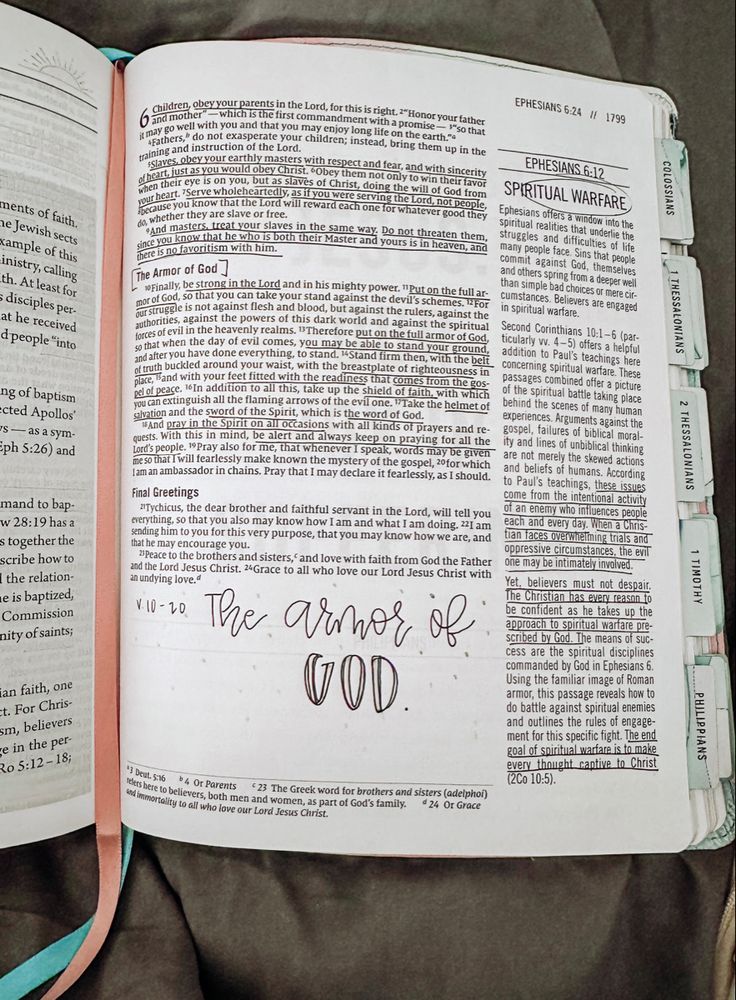 ments of faith.
ne Jewish sects
xample of this
inistry, calling
th. At least for
s disciples per-
at he received
d people “into
ng of baptism
cted Apollos’
vs — as a sym-
Eph 5:26) and
mand to bap-
w 28:19 has a
s together the
scribe how to
l the relation-
ne is baptized,
Commission
nity of saints;
ian faith, one
ct. For Chris-
sm, believers
ge in the per-
Ro 5:12 – 18;
EPHESIANS 6:24 // 1799
6 Children, obey your parents in the Lord, for this is right. 2“Honor your father
and mother” — which is the first commandment with a promise — 3“so that
it may go well with you and that you may enjoy long life on the earth.”a
4Fathers,b do not exasperate your children; instead, bring them up in the
training and instruction of the Lord.
5Slaves, obey your earthly masters with respect and fear, and with sincerity
of heart, just as you would obey Christ. 6Obey them not only to win their favor
when their eye is on you, but as slaves of Christ, doing the will of God from
your heart. 7Serve wholeheartedly, as if you were serving the Lord, not people,
8because you know that the Lord will reward each one for whatever good they
do, whether they are slave or free.
9And masters, treat your slaves in the same way. Do not threaten them,
since you know that he who is both their Master and yours is in heaven, and
there is no favoritism with him.
The Armor of God
10Finally, be strong in the Lord and in his mighty power. 11Put on the full ar-
mor of God, so that you can take your stand against the devil’s schemes. 12For
our struggle is not against flesh and blood, but against the rulers, against the
authorities, against the powers of this dark world and against the spiritual
forces of evil in the heavenly realms. 13Therefore put on the full armor of God,
so that when the day of evil comes, you may be able to stand your ground,
and after you have done everything, to stand. 14Stand firm then, with the belt
of truth buckled around your waist, with the breastplate of righteousness in
place, 15and with your feet fitted with the readiness that comes from the gos-
pel of peace. 16In addition to all this, take up the shield of faith, with which
you can extinguish all the flaming arrows of the evil one. 17Take the helmet of
salvation and the sword of the Spirit, which is the word of God.
18And pray in the Spirit on all occasions with all kinds of prayers and re-
quests. With this in mind, be alert and always keep on praying for all the
Lord’s people. 19Pray also for me, that whenever I speak, words may be given
me so that I will fearlessly make known the mystery of the gospel, 20for which
I am an ambassador in chains. Pray that I may declare it fearlessly, as I should.
Final Greetings
21Tychicus, the dear brother and faithful servant in the Lord, will tell you
everything, so that you also may know how I am and what I am doing. 22I am
sending him to you for this very purpose, that you may know how we are, and
that he may encourage you.
23Peace to the brothers and sisters,c and love with faith from God the Father
and the Lord Jesus Christ. 24Grace to all who love our Lord Jesus Christ with
an undying love.d
V. 10 - 20 The armor of
GOD.
a3 Deut. 5:16 b4 Or Parents c23 The Greek word for brothers and sisters (adelphoi)
refers here to believers, both men and women, as part of God’s family. d24 Or Grace
and immortality to all who love our Lord Jesus Christ.
EPHESIANS 6:12
SPIRITUAL WARFARE
Ephesians offers a window into the
spiritual realities that underlie the
struggles and difficulties of life
many people face. Sins that people
commit against God, themselves
and others spring from a deeper well
than simple bad choices or mere cir-
cumstances. Believers are engaged
in spiritual warfare.
Second Corinthians 10:1–6 (par-
ticularly vv. 4–5) offers a helpful
addition to Paul’s teachings here
concerning spiritual warfare. These
passages combined offer a picture
of the spiritual battle taking place
behind the scenes of many human
experiences. Arguments against the
gospel, failures of biblical moral-
ity and lines of unbiblical thinking
are not merely the skewed actions
and beliefs of humans. According
to Paul’s teachings, these issues
come from the intentional activity
of an enemy who influences people
each and every day. When a Chris-
tian faces overwhelming trials and
oppressive circumstances, the evil
one may be intimately involved.
Yet, believers must not despair.
The Christian has every reason to
be confident as he takes up the
approach to spiritual warfare pre-
scribed by God. The means of suc-
cess are the spiritual disciplines
commanded by God in Ephesians 6.
Using the familiar image of Roman
armor, this passage reveals how to
do battle against spiritual enemies
and outlines the rules of engage-
ment for this specific fight. The end
goal of spiritual warfare is to make
every thought captive to Christ
(2Co 10:5).
COLOSSIANS
1 THESSALONIANS
2 THESSALONIANS
1 TIMOTHY
PHILIPPIANS